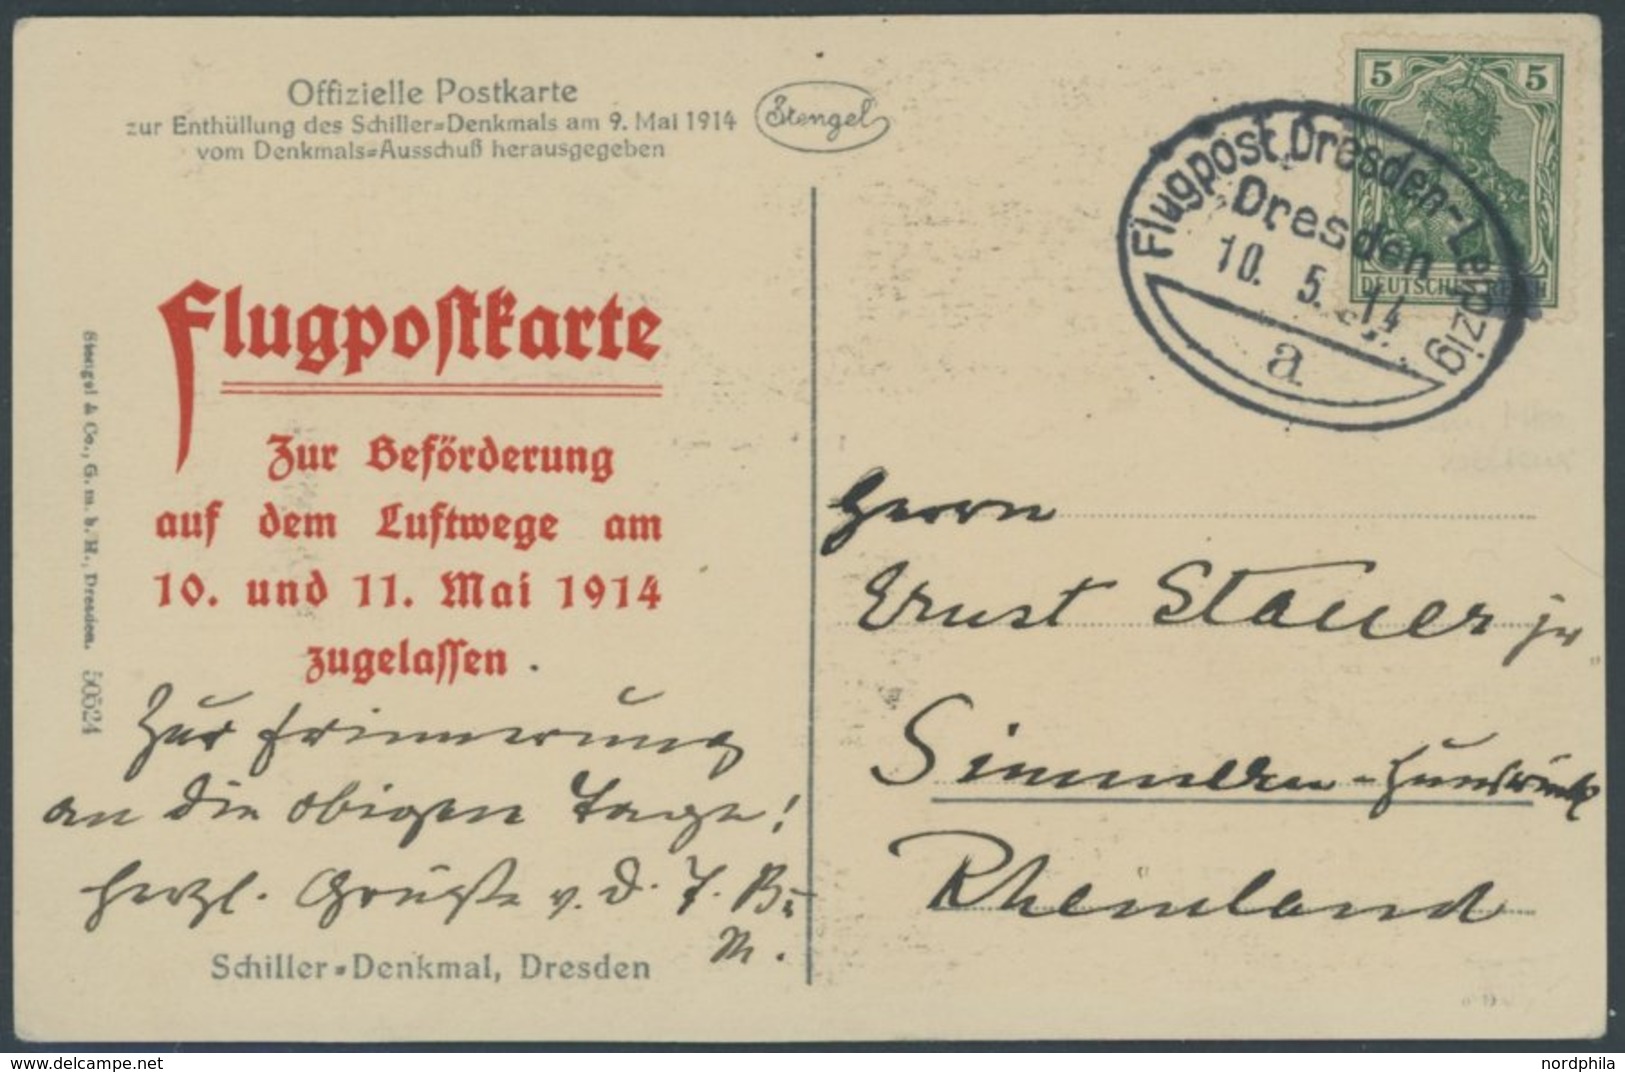 Offizielle Postkarte
zur Enthüllung des Schiller=Denkmals am 9. Mai 1914
vom Denkmals=Ausschuß herausgegeben
Stengel
5 5
DEUTSCHES REICH
Flugpost Dresden-Leipzig
Dresden
10. 5. 14
a
Flugpostkarte
Zur Beförderung
auf dem Luftwege am
10. und 11. Mai 1914
zugelassen
Stengel & Co., G. m. b. H., Dresden. 50524
Zur Erinnerung
an die obigen Tage!
Herzl. Grüße v. d. T. B.
M.
Schiller=Denkmal, Dresden
Herrn
Ernst Stauer jr.
Simmern - Hunsrück
Rheinland
www.delcampe.net
nordphila